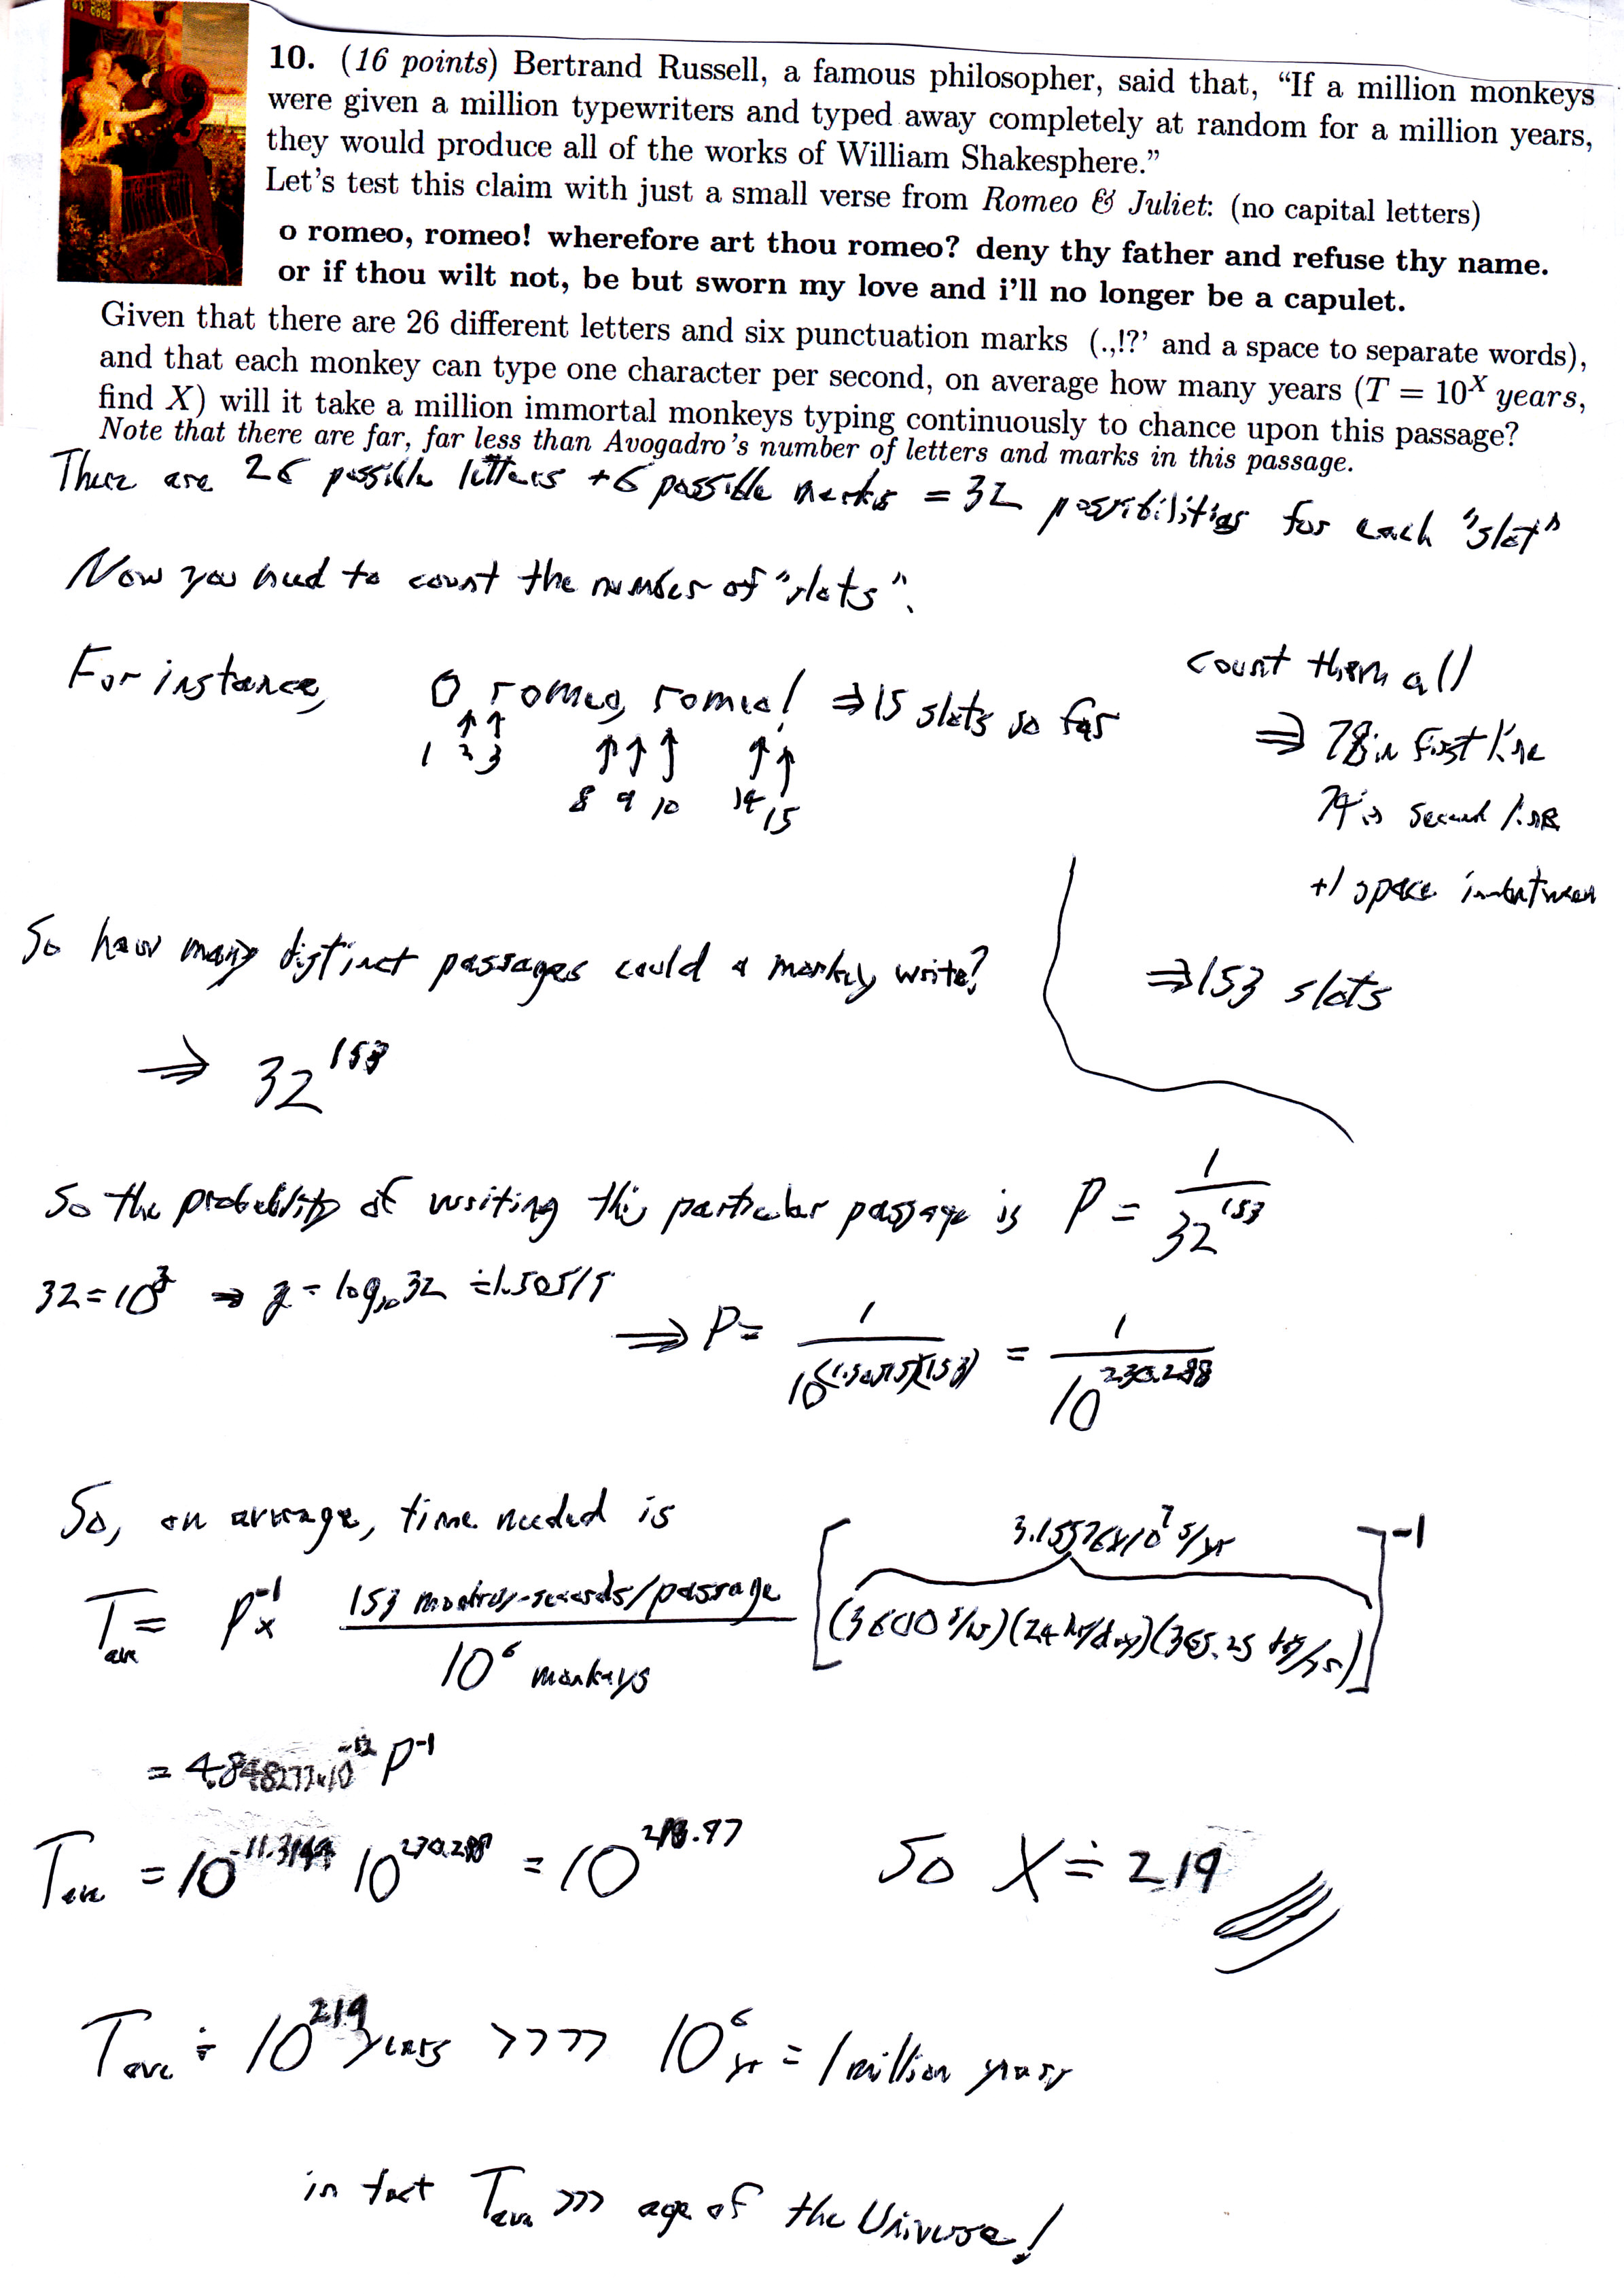 10. (16 points) Bertrand Russell, a famous philosopher, said that, “If a million monkeys
were given a million typewriters and typed away completely at random for a million years,
they would produce all of the works of William Shakesphere.”
Let's test this claim with just a small verse from Romeo & Juliet: (no capital letters)
o romeo, romeo! wherefore art thou romeo? deny thy father and refuse thy name.
or if thou wilt not, be but sworn my love and i'll no longer be a capulet.
Given that there are 26 different letters and six punctuation marks (.,!?' and a space to separate words),
and that each monkey can type one character per second, on average how many years (T = 10^X years,
find X) will it take a million immortal monkeys typing continuously to chance upon this passage?
Note that there are far, far less than Avogadro's number of letters and marks in this passage.
There are 26 possible letters + 6 possible marks = 32 possibilities for each "slot"
Now you need to count the number of "slots".
For instance, O romeo, romeo! ⇒ 15 slots so far
1 2 3 8 9 10 14 15
count them all
⇒ 78 in first line
74 in second line
+1 space inbetween
⇒ 153 slots
So how many distinct passages could a monkey write?
⇒ 32^153
So the probability of writing this particular passage is P = 1/32^153
32 = 10^z ⇒ z = log₁₀ 32 ≐ 1.50515
⇒ P = 1/10^(1.50515)(153) = 1/10^230.288
So, on average, time needed is
T_ave = P^-1 x 153 monkey-seconds/passage / 10^6 monkeys [(3600 s/hr)(24 hr/day)(365.25 day/yr)]^-1
3.15576x10^7 s/yr
= 4.848277x10^-12 P^-1
T_ave = 10^-11.3144 10^230.288 = 10^218.97 So X ≐ 219
T_ave ≐ 10^219 years >>>> 10^6 yr = 1 million years
in fact T_ave >>> age of the Universe!